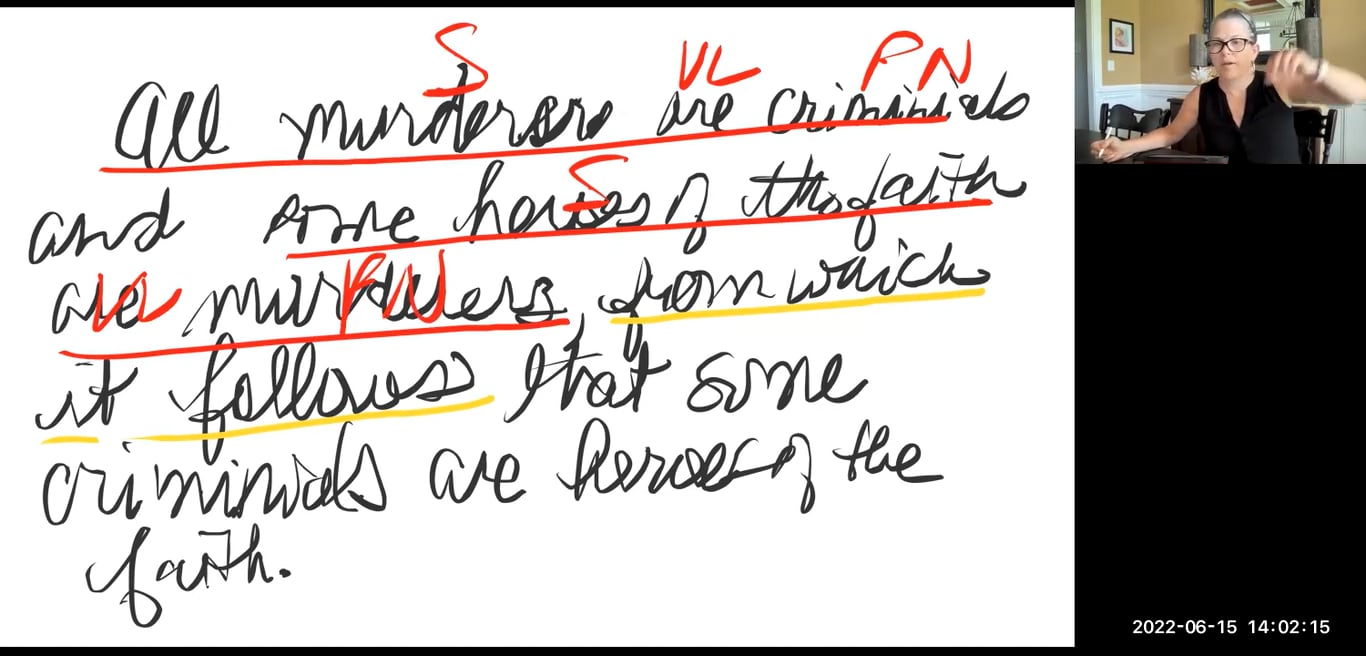 S VL PN
All murderers are criminials
S
and some heroes of the faith
VL PN
are murderers from which
it follows that some
criminials are heroes of the
faith.
2022-06-15 14:02:15